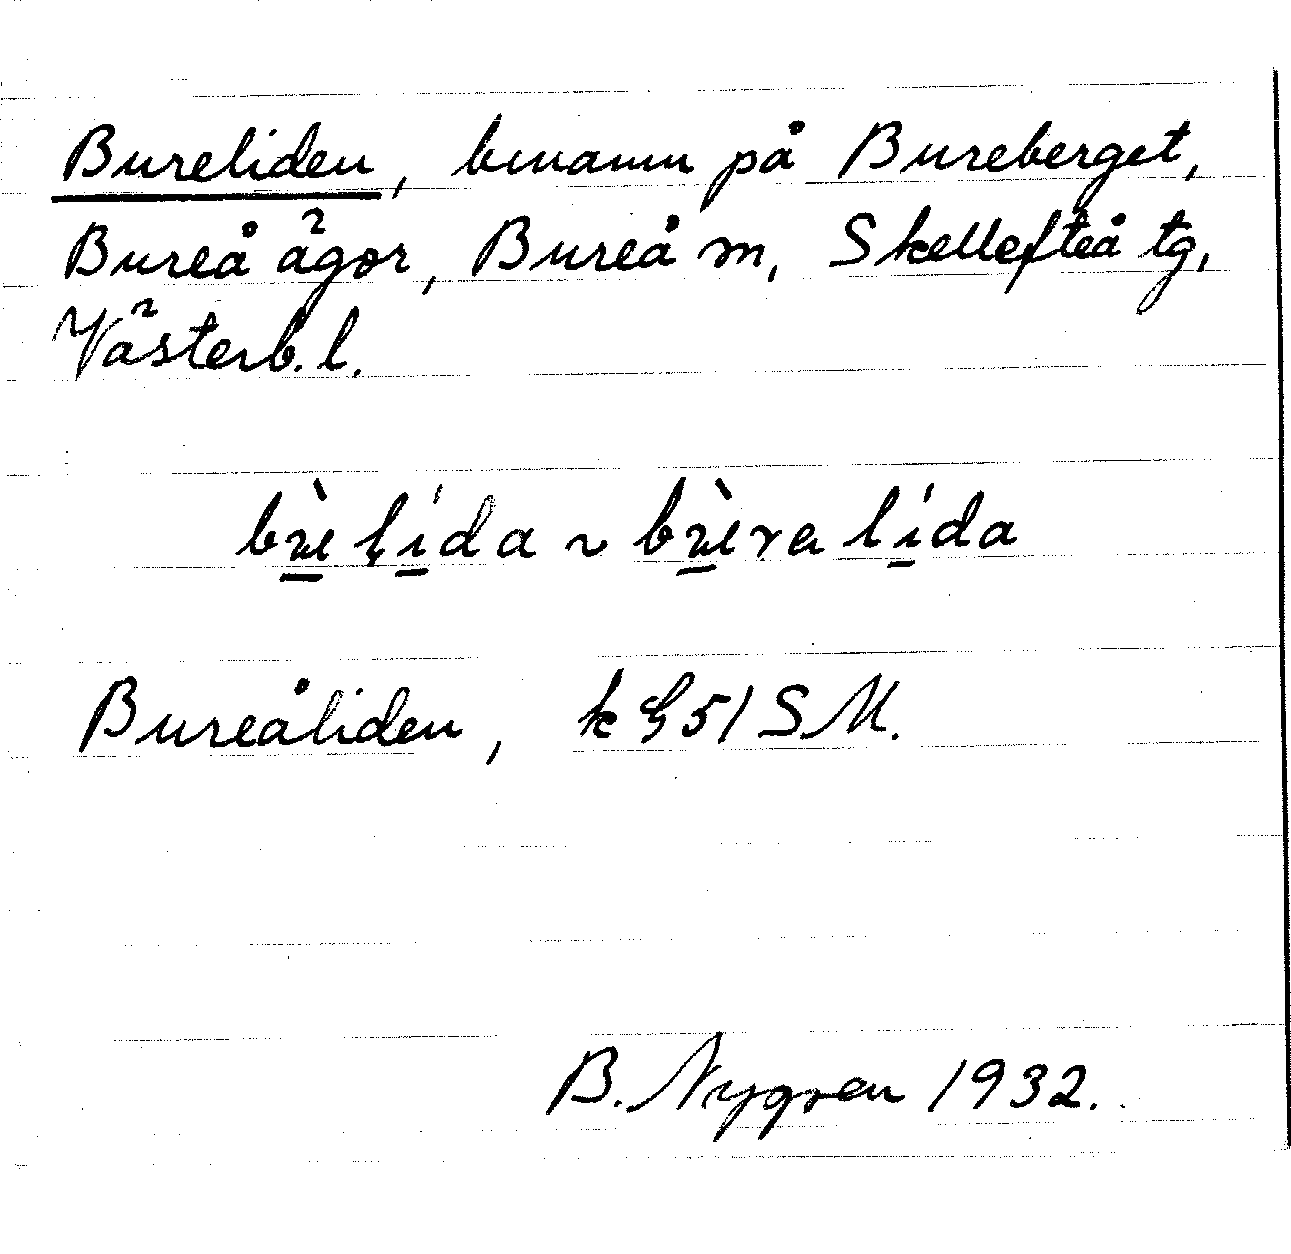 Bureliden, binamn på Bureberget,
Bureå ägor, Bureå m, Skellefteå tg,
Västerb. l.
Bureåliden, k § 51 S M.
B. Nygren 1932.